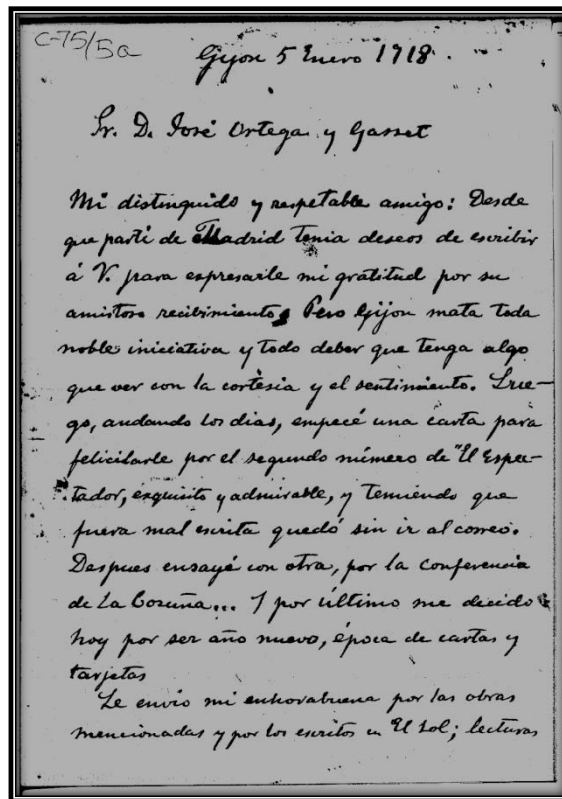 C-75/5a
Gijon 5 Enero 1918.
Sr. D. José Ortega y Gasset
Mi distinguido y respetable amigo: Desde
que partí de Madrid tenia deseos de escribir
á V. para espresarle mi gratitud por su
amistoso recibimiento, Pero Gijon mata toda
noble iniciativa y todo deber que tenga algo
que ver con la cortesia y el sentimiento. Lue-
go, andando los dias, empecé una carta para
felicitarle por el segundo número de "El Espe-
tador, exquisito y admirable, y temiendo que
fuera mal escrita quedó sin ir al correo.
Despues ensayé con otra, por la conferencia
de La Coruña... Y por último me decido
hoy por ser año nuevo, época de cartas y
tarjetas
Le envio mi enhorabuena por las obras
mencionadas y por los escritos en El Sol; lecturas